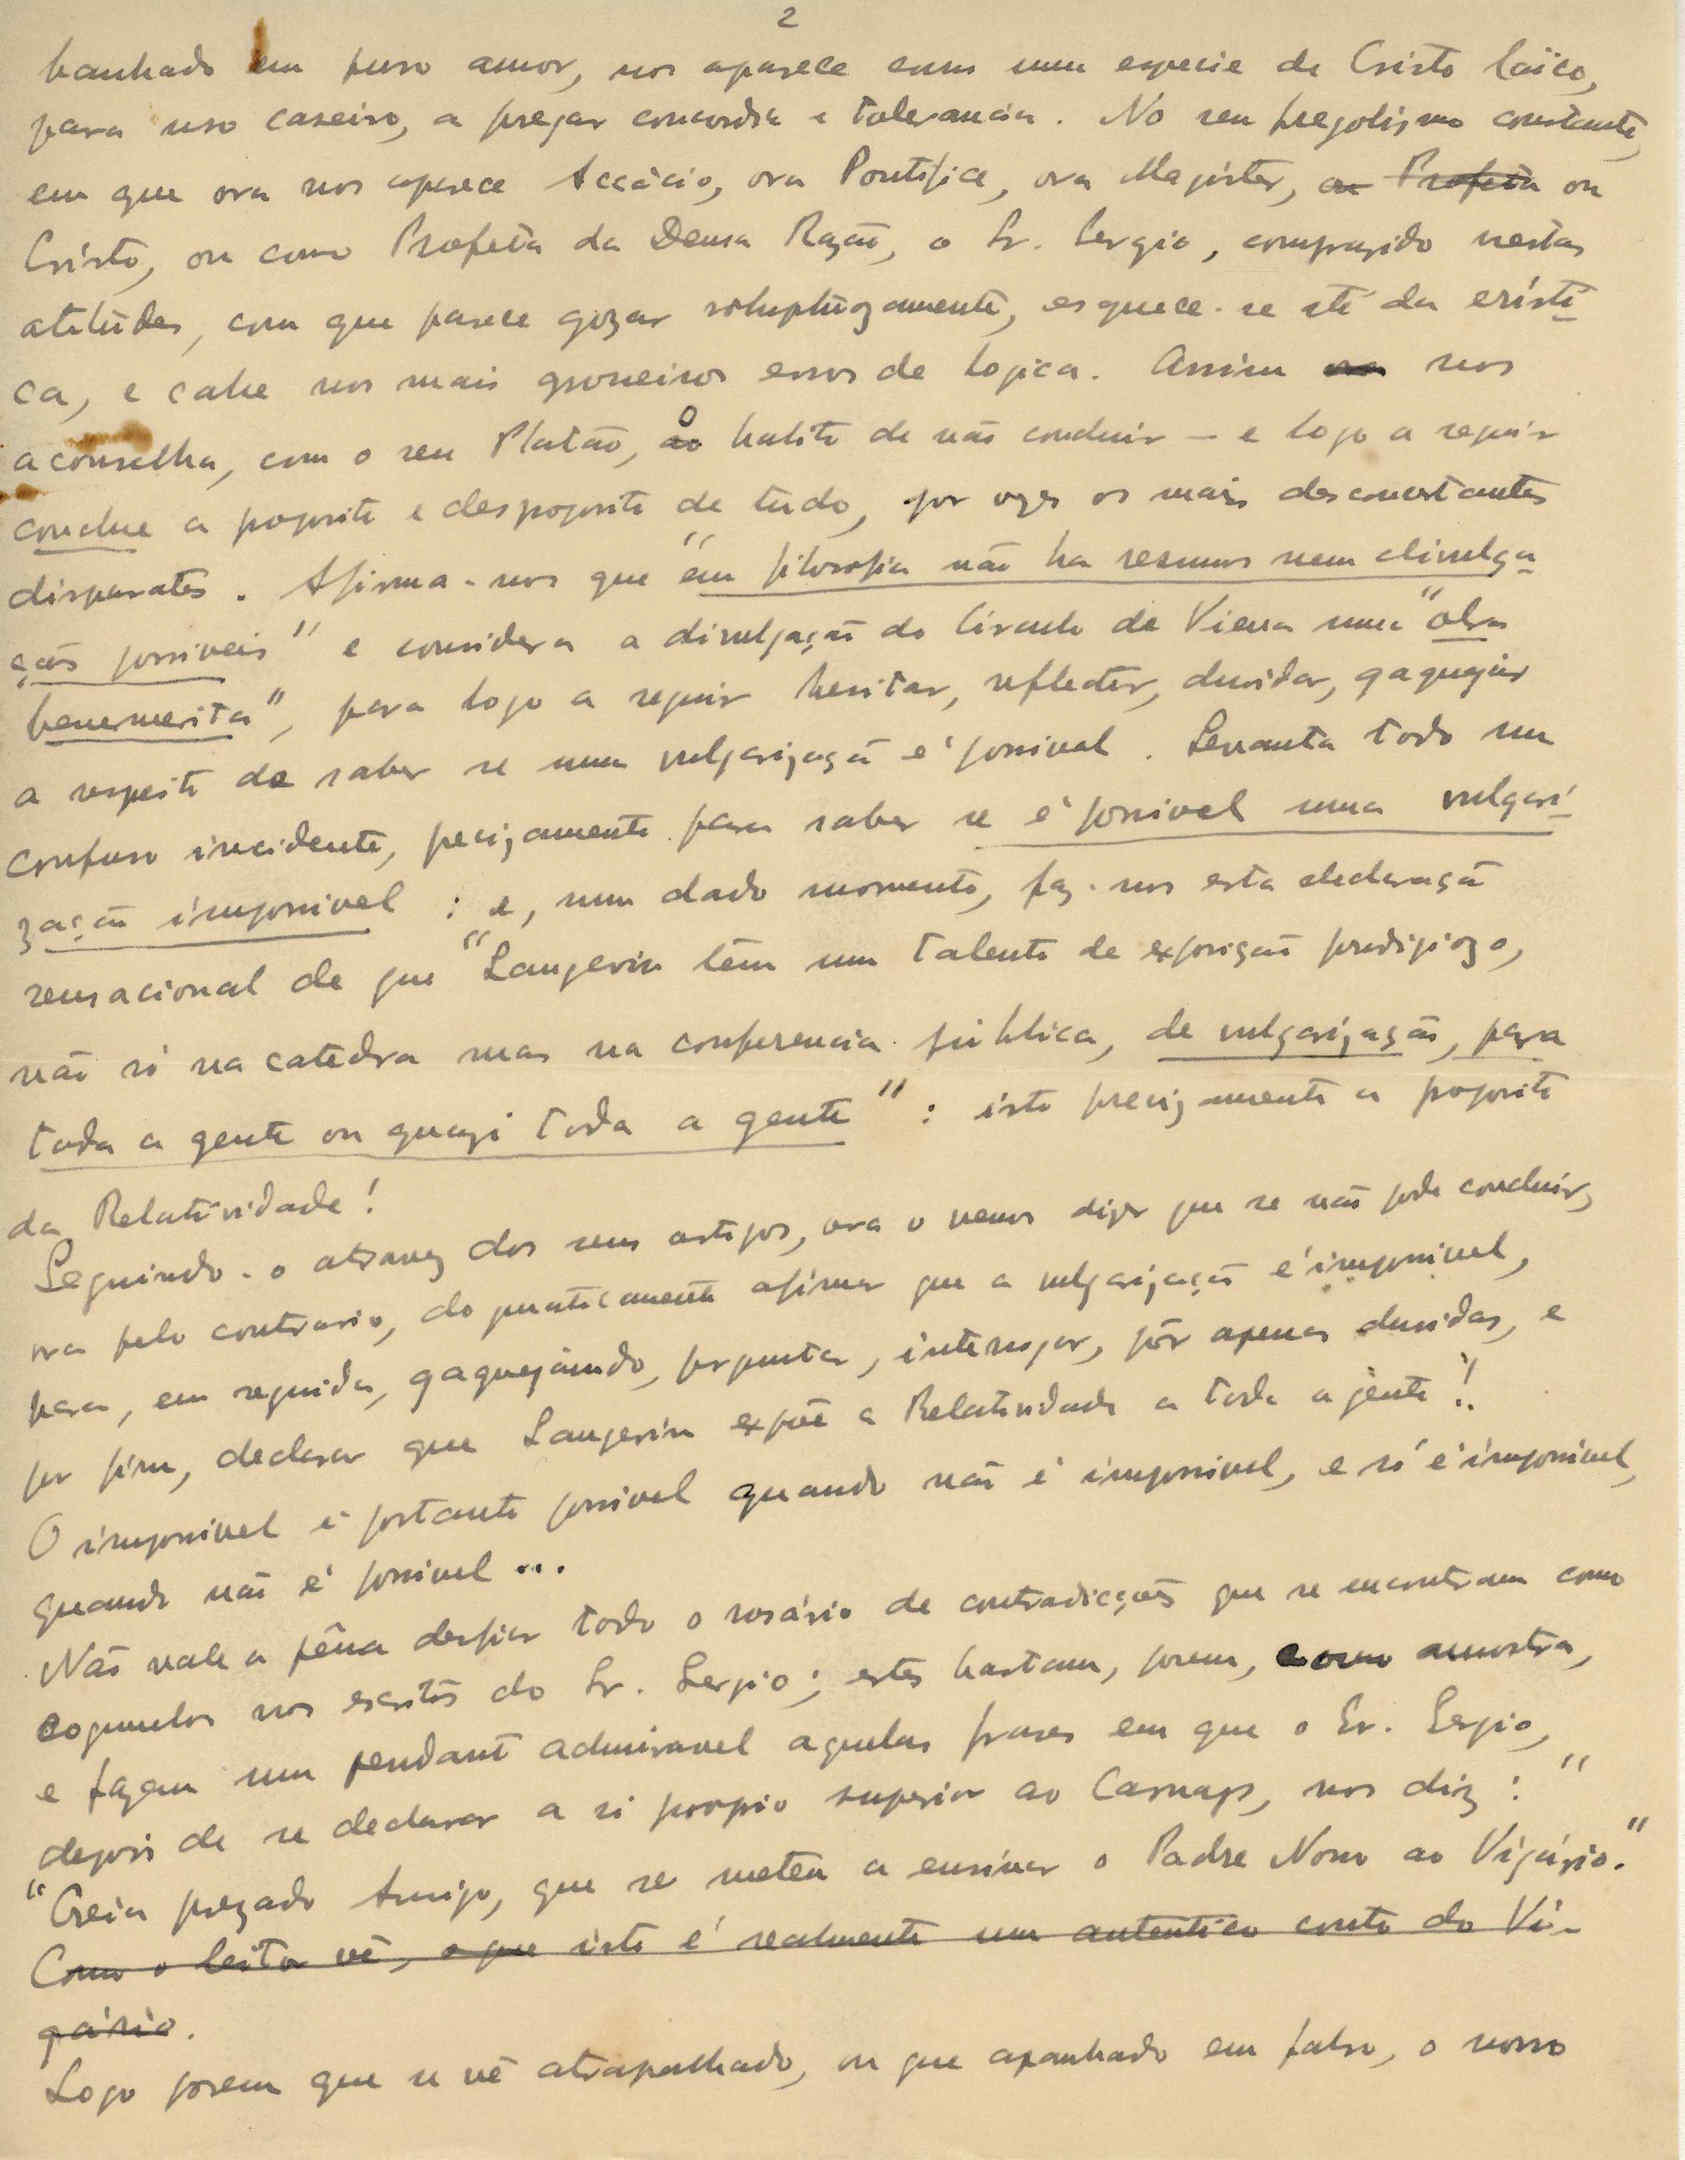 2
banhado em puro amor, nos aparece como uma especie de Cristo laïco,
para uso caseiro, a pregar concordia e tolerancia. No seu fregolismo constante,
em que ora nos aparece Accácio, ora Pontifice, ora Magister, ou Profeta ou
Cristo, ou como Profeta da Deusa Razão, o Sr. Sergio, comprazido nestas
atitudes, com que parece gozar voluptuozamente, esquece-se até da eristi-
ca, e cahe nos mais grosseiros erros de logica. Assim nos
aconselha, com o seu Platão, o habito de não concluir – e logo a seguir
conclue a proposito e desproposito de tudo, por vezes os mais desconcertantes
disparates. Afirma-nos que "em filosofia não ha resumos nem divulga-
ções possiveis" e considera a divulgação do Circulo de Viena uma "obra
benemerita", para logo a seguir hesitar, reflectir, duvidar, gaguejar
a respeito de saber se uma vulgarização é possivel. Levanta todo um
confuso incidente, precizamente para saber se é possivel uma vulgari-
zação impossivel : e, num dado momento, faz-nos esta declaração
sensacional de que "Langevin têm um talento de exposição prodigiozo,
não só na catedra mas na conferencia pública, de vulgarização, para
toda a gente ou quazi toda a gente" : isto precizamente a proposito
da Relatividade!
Seguindo-o atravez dos seus artigos, ora o vemos dizer que se não pode concluir,
ora pelo contrario, dogmaticamente afirmar que a vulgarização é impossivel,
para, em seguida, gaguejando, perguntar, interrogar, pôr apenas duvidas, e
por fim, declarar que Langevin expõe a Relatividade a toda a jente!.
O impossivel é portanto possivel quando não é impossivel, e só é impossivel,
quando não é possivel ...
Não vale a pêna desfiar todo o rosário de contradicções que se encontram como
cogumelos nos escritos do Sr. Sergio; estes bastam, porem, como amostra,
e fazem um pendant admiravel aquelas frases em que o Sr. Sergio,
depois de se declarar a si proprio superior ao Carnap, nos diz : "
"Creia prezado Amigo, que se meteu a ensinar o Padre Nosso ao Vigário."
Como o leitor vê, o que isto é realmente um autentico conto do Vi-
gário.
Logo porem que se vê atrapalhado, ou que apanhado em falso, o nosso